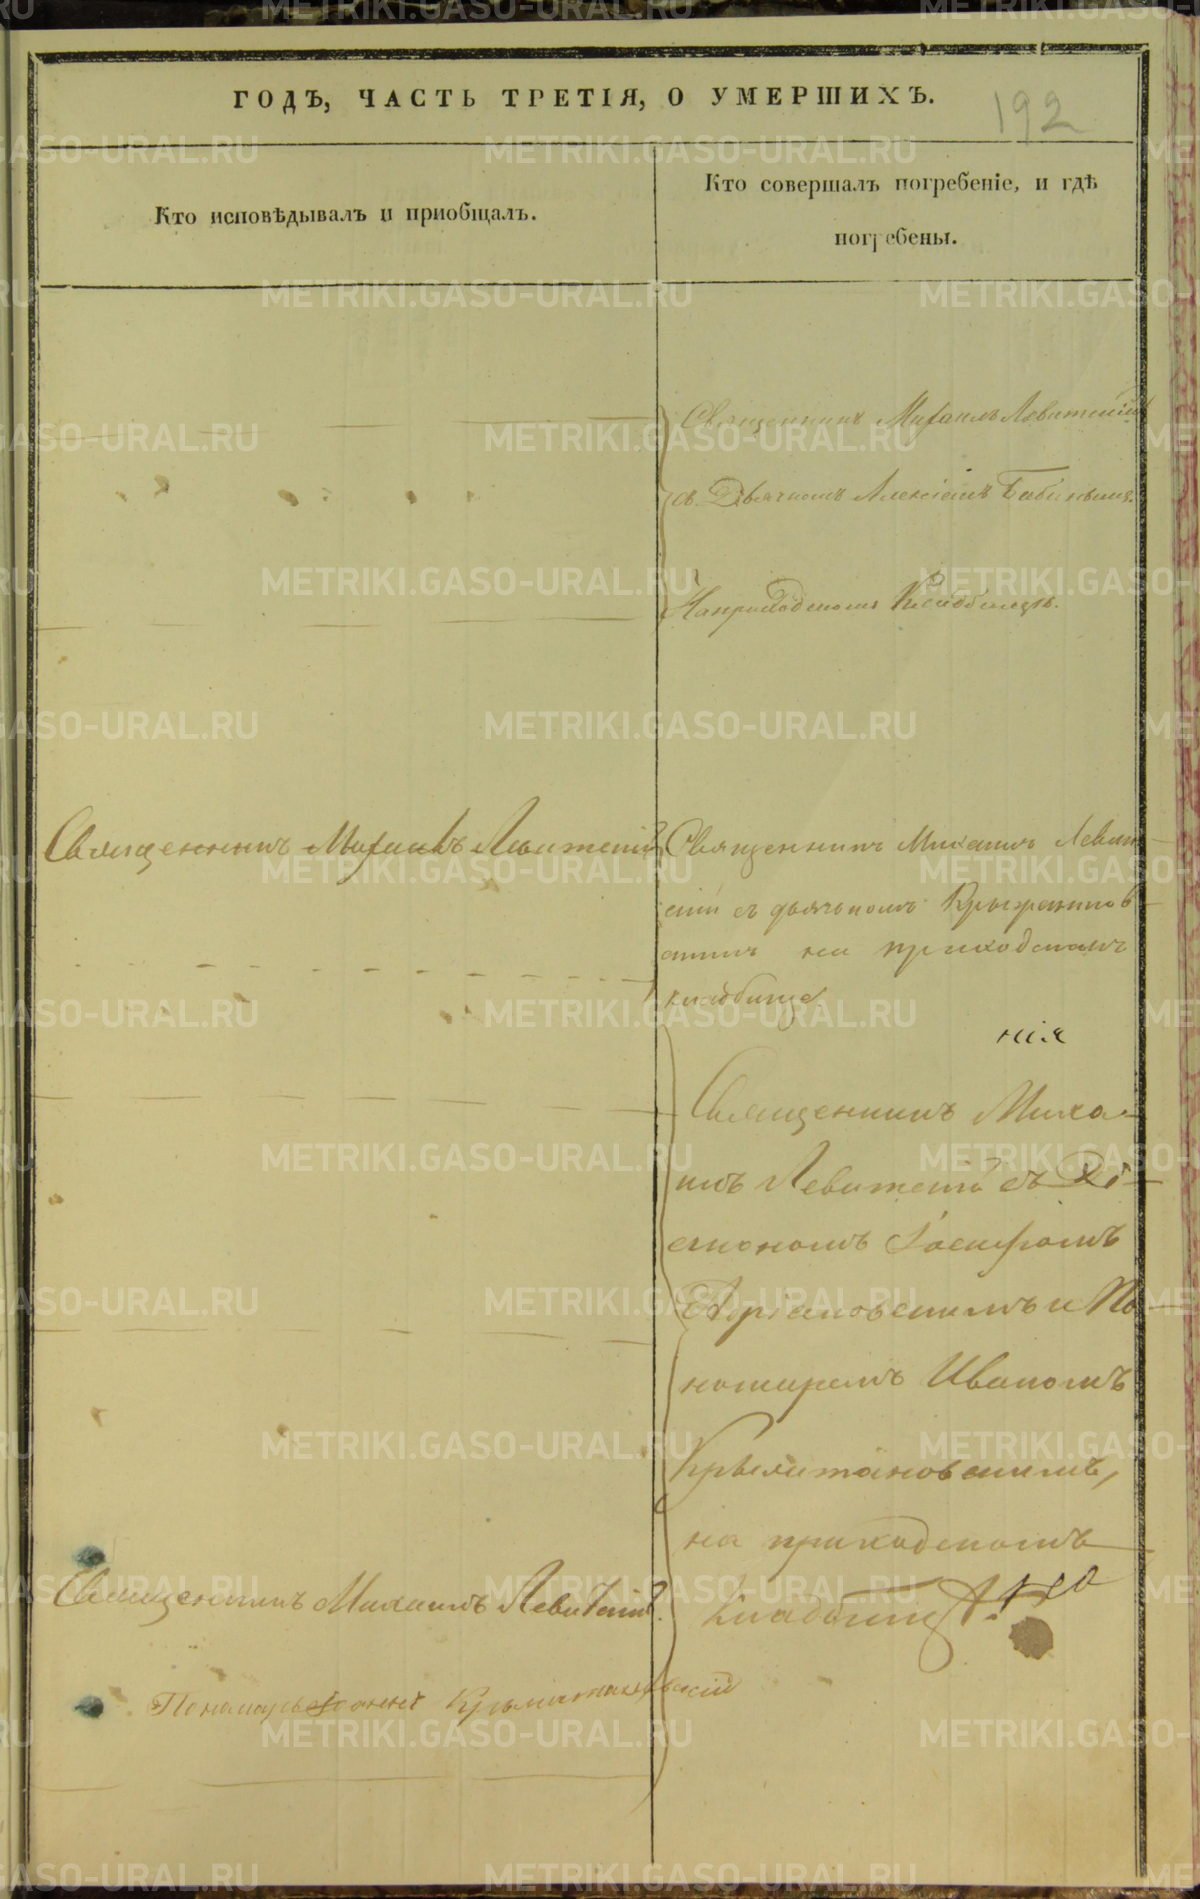 ГОДЪ, ЧАСТЬ ТРЕТІЯ, О УМЕРШИХЪ.
192
Кто исповѣдывалъ и пріобщалъ.
Кто совершалъ погребеніе, и гдѣ
погребены.
Священникъ Михаилъ Левитскій
съ Дьячкомъ Алексіемъ Бабинымъ.
На приходскомъ Кладбищѣ.
Священникъ Михаилъ Левитскій
Священникъ Михаилъ Левит
скій съ дьячкомъ
на приходскомъ
кладбище.
нія
Священникъ Миха-
илъ Левитскій съ Ді-
акономъ Іосифомъ
Адріановскимъ и По
номаремъ Иваномъ
Крылатановскимъ,
на приходскомъ
Кладбищѣ.
Священникъ Михаилъ Левитскій.
Пономарь Іоаннъ
METRIKI.GASO-URAL.RU